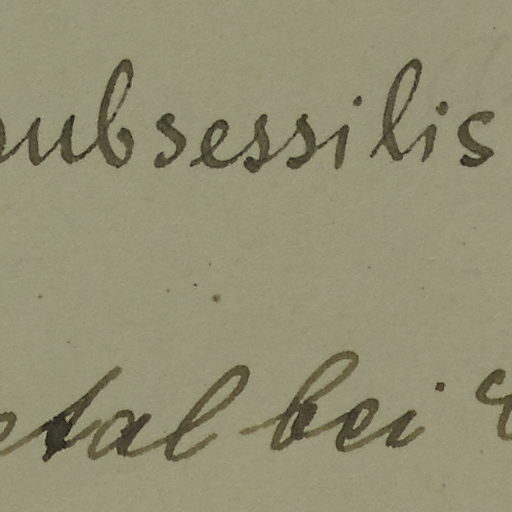 subsessilis
etal bei